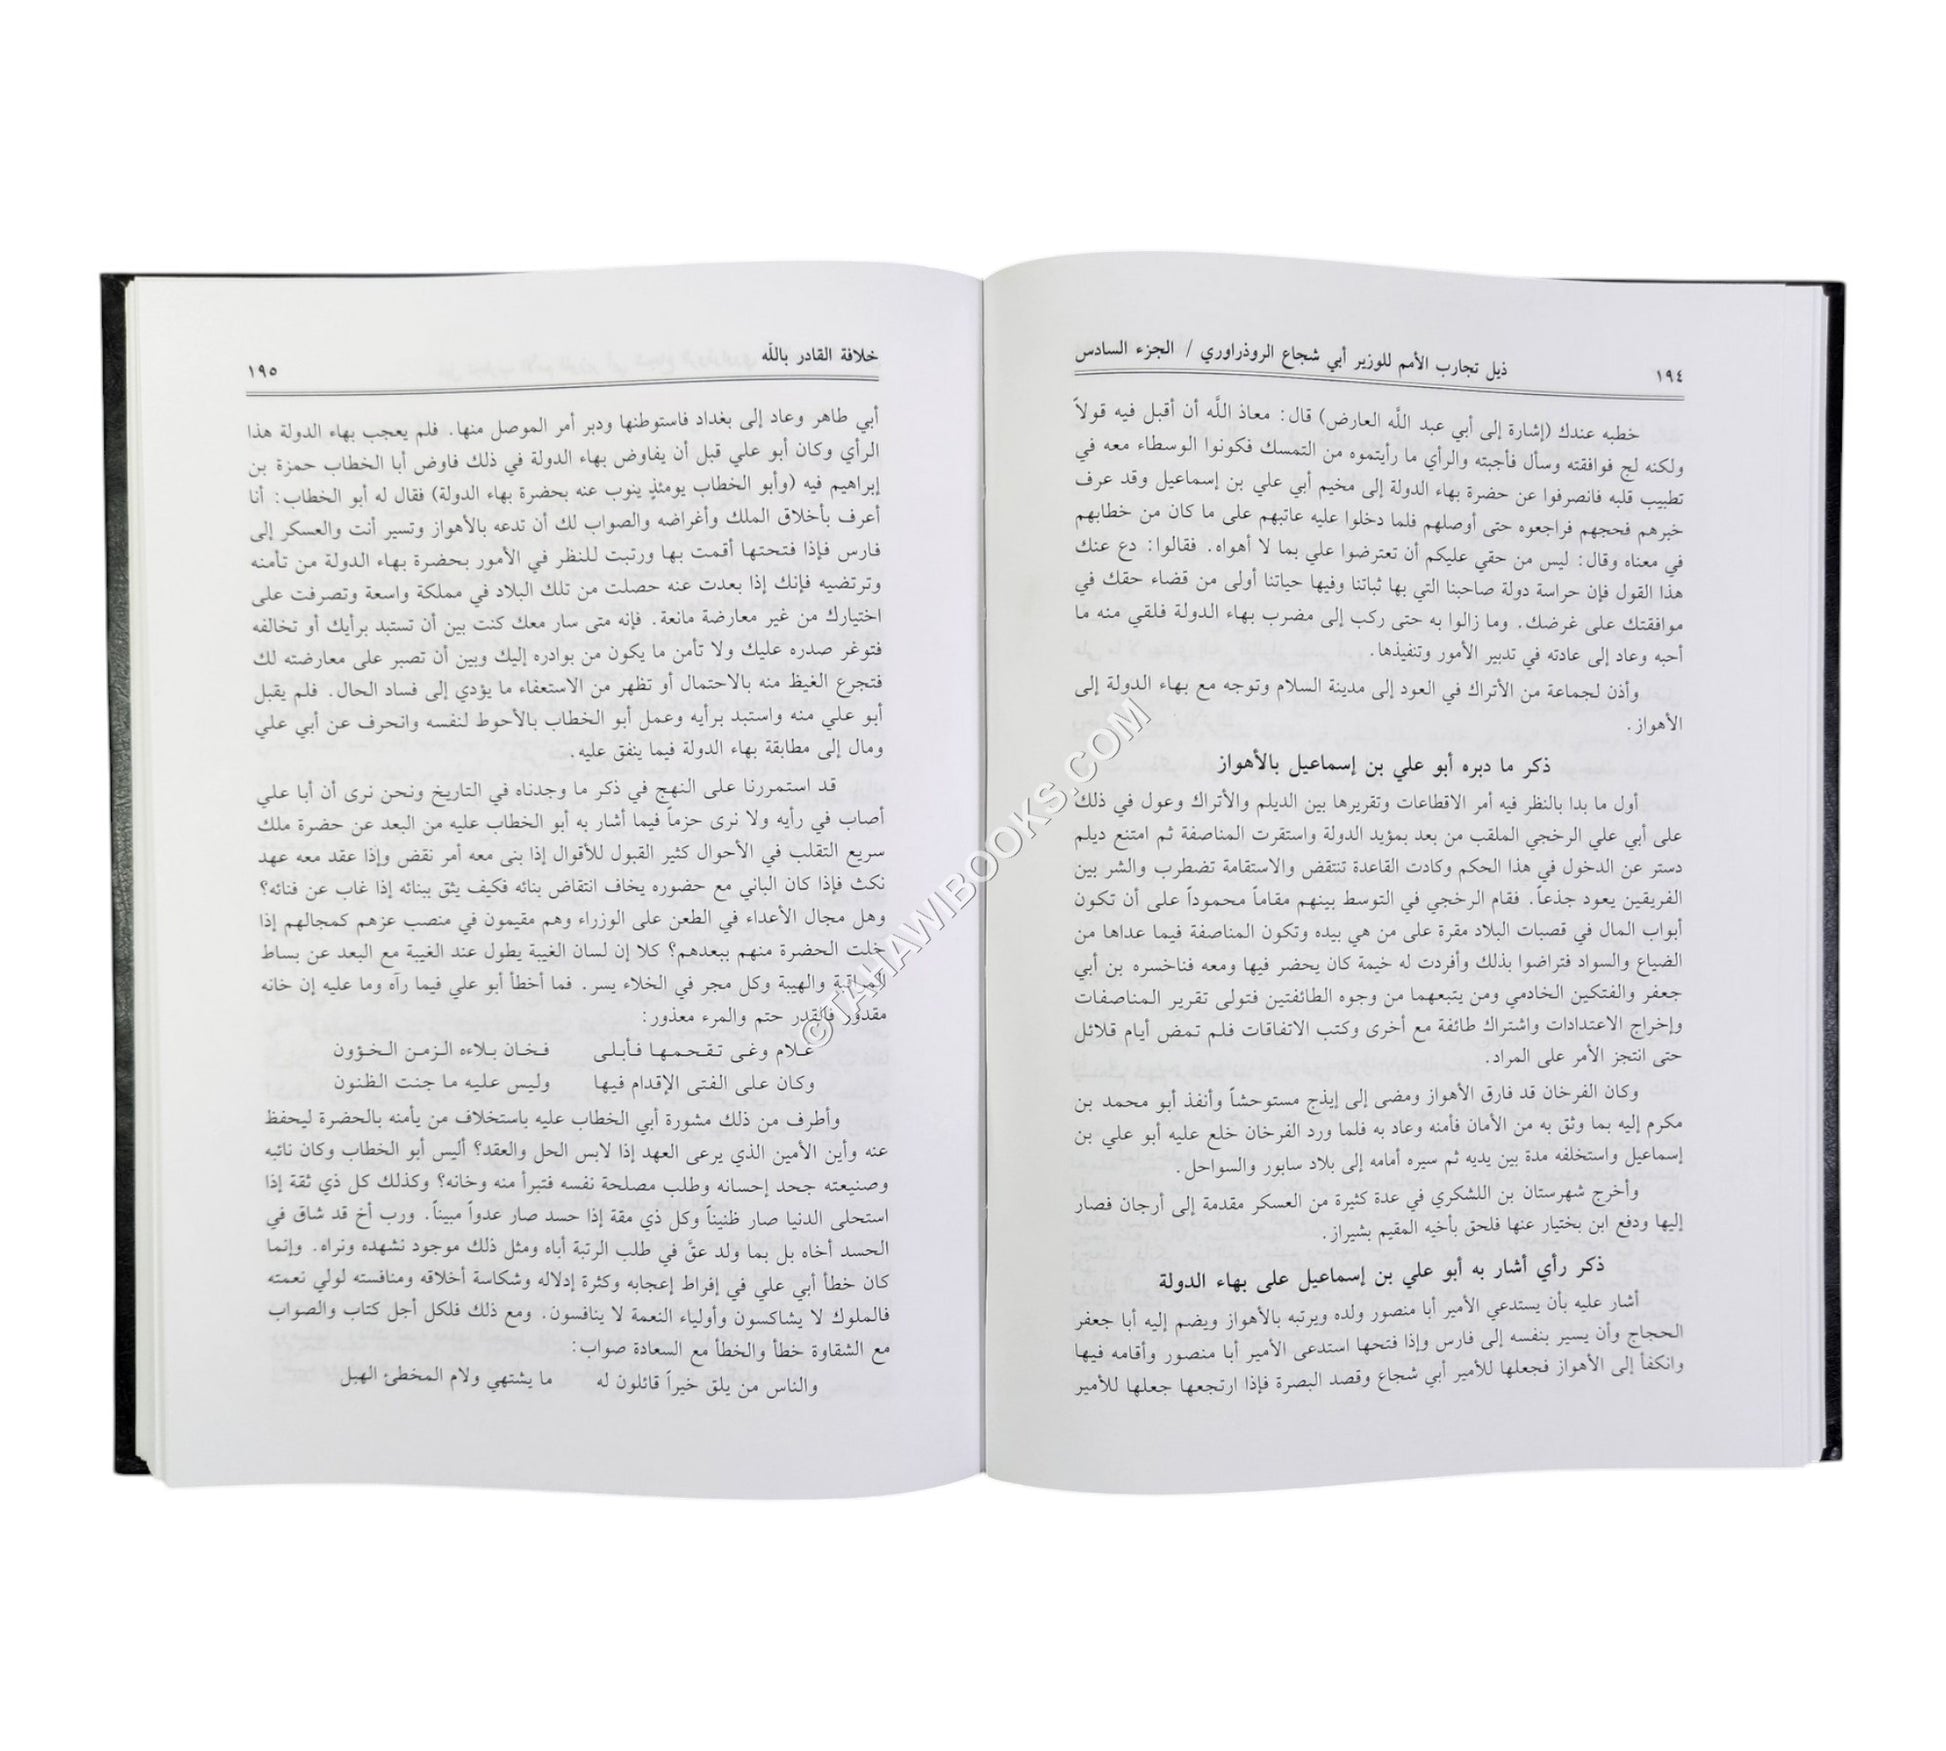 ١٩٤
ذيل تجارب الأمم للوزير أبي شجاع الروذراوري / الجزء السادس
خطبه عندك (إشارة إلى أبي عبد اللَّه العارض) قال: معاذ اللَّه أن أقبل فيه قولاً
ولكنه لج فوافقته وسأل فأجبته والرأي ما رأيتموه من التمسك فكونوا الوسطاء معه في
تطبيب قلبه فانصرفوا عن حضرة بهاء الدولة إلى مخيم أبي علي بن إسماعيل وقد عرف
خبرهم فحجهم فراجعوه حتى أوصلهم فلما دخلوا عليه عاتبهم على ما كان من خطابهم
في معناه وقال: ليس من حقي عليكم أن تعترضوا علي بما لا أهواه. فقالوا: دع عنك
هذا القول فإن حراسة دولة صاحبنا التي بها ثباتنا وفيها حياتنا أولى من قضاء حقك في
موافقتك على غرضك. وما زالوا به حتى ركب إلى مضرب بهاء الدولة فلقي منه ما
أحبه وعاد إلى عادته في تدبير الأمور وتنفيذها.
وأذن لجماعة من الأتراك في العود إلى مدينة السلام وتوجه مع بهاء الدولة إلى
الأهواز.
ذكر ما دبره أبو علي بن إسماعيل بالأهواز
أول ما بدا بالنظر فيه أمر الاقطاعات وتقريرها بين الديلم والأتراك وعول في ذلك
على أبي علي الرخجي الملقب من بعد بمؤيد الدولة واستقرت المناصفة ثم امتنع ديلم
دستر عن الدخول في هذا الحكم وكادت القاعدة تنتقض والاستقامة تضطرب والشر بين
الفريقين يعود جذعاً. فقام الرخجي في التوسط بينهم مقاماً محموداً على أن تكون
أبواب المال في قصبات البلاد مقرة على من هي بيده وتكون المناصفة فيما عداها من
الضياع والسواد فتراضوا بذلك وأفردت له خيمة كان يحضر فيها ومعه فناخسره بن أبي
جعفر والفتكين الخادمي ومن يتبعهما من وجوه الطائفتين فتولى تقرير المناصفات
وإخراج الاعتدادات واشتراك طائفة مع أخرى وكتب الاتفاقات فلم تمض أيام قلائل
حتى انتجز الأمر على المراد.
وكان الفرخان قد فارق الأهواز ومضى إلى إيذج مستوحشاً وأنفذ أبو محمد بن
مكرم إليه بما وثق به من الأمان فأمنه وعاد به فلما ورد الفرخان خلع عليه أبو علي بن
إسماعيل واستخلفه مدة بين يديه ثم سيره أمامه إلى بلاد سابور والسواحل.
وأخرج شهرستان بن اللشكري في عدة كثيرة من العسكر مقدمة إلى أرجان فصار
إليها ودفع ابن بختيار عنها فلحق بأخيه المقيم بشيراز.
ذكر رأي أشار به أبو علي بن إسماعيل على بهاء الدولة
أشار عليه بأن يستدعي الأمير أبا منصور ولده ويرتبه بالأهواز ويضم إليه أبا جعفر
الحجاج وأن يسير بنفسه إلى فارس وإذا فتحها استدعى الأمير أبا منصور وأقامه فيها
وانكفأ إلى الأهواز فجعلها للأمير أبي شجاع وقصد البصرة فإذا ارتجعها جعلها للأمير
خلافة القادر باللَّه
١٩٥
أبي طاهر وعاد إلى بغداد فاستوطنها ودبر أمر الموصل منها. فلم يعجب بهاء الدولة هذا
الرأي وكان أبو علي قبل أن يفاوض بهاء الدولة في ذلك فاوض أبا الخطاب حمزة بن
إبراهيم فيه (وأبو الخطاب يومئذٍ ينوب عنه بحضرة بهاء الدولة) فقال له أبو الخطاب: أنا
أعرف بأخلاق الملك وأغراضه والصواب لك أن تدعه بالأهواز وتسير أنت والعسكر إلى
فارس فإذا فتحتها أقمت بها ورتبت للنظر في الأمور بحضرة بهاء الدولة من تأمنه
وترتضيه فإنك إذا بعدت عنه حصلت من تلك البلاد في مملكة واسعة وتصرفت على
اختيارك من غير معارضة مانعة. فإنه متى سار معك كنت بين أن تستبد برأيك أو تخالفه
فتوغر صدره عليك ولا تأمن ما يكون من بوادره إليك وبين أن تصبر على معارضته لك
فتجرع الغيظ منه بالاحتمال أو تظهر من الاستعفاء ما يؤدي إلى فساد الحال. فلم يقبل
أبو علي منه واستبد برأيه وعمل أبو الخطاب بالأحوط لنفسه وانحرف عن أبي علي
ومال إلى مطابقة بهاء الدولة فيما ينفق عليه.
قد استمررنا على النهج في ذكر ما وجدناه في التاريخ ونحن نرى أن أبا علي
أصاب في رأيه ولا نرى حزماً فيما أشار به أبو الخطاب عليه من البعد عن حضرة ملك
سريع التقلب في الأحوال كثير القبول للأقوال إذا بنى معه أمر نقض وإذا عقد معه عهد
نكث فإذا كان الباني مع حضوره يخاف انتقاض بنائه فكيف يثق ببنائه إذا غاب عن فنائه؟
وهل مجال الأعداء في الطعن على الوزراء وهم مقيمون في منصب عزهم كمجالهم إذا
خلت الحضرة منهم ببعدهم؟ كلا إن لسان الغيبة يطول عند الغيبة مع البعد عن بساط
المراقبة والهيبة وكل مجر في الخلاء يسر. فما أخطأ أبو علي فيما رآه وما عليه إن خانه
مقدور فالقدر حتم والمرء معذور:
غلام وغى تقحمها فأبلى فخان بلاءه الزمن الخؤون
وكان على الفتى الإقدام فيها وليس عليه ما جنت الظنون
وأطرف من ذلك مشورة أبي الخطاب عليه باستخلاف من يأمنه بالحضرة ليحفظ
عنه وأين الأمين الذي يرعى العهد إذا لابس الحل والعقد؟ أليس أبو الخطاب وكان نائبه
وصنيعته جحد إحسانه وطلب مصلحة نفسه فتبرأ منه وخانه؟ وكذلك كل ذي ثقة إذا
استحلى الدنيا صار ظنيناً وكل ذي مقة إذا حسد صار عدواً مبيناً. ورب أخ قد شاق في
الحسد أخاه بل بما ولد عقَّ في طلب الرتبة أباه ومثل ذلك موجود نشهده ونراه. وإنما
كان خطأ أبي علي في إفراط إعجابه وكثرة إدلاله وشكاسة أخلاقه ومنافسته لولي نعمته
فالملوك لا يشاكسون وأولياء النعمة لا ينافسون. ومع ذلك فلكل أجل كتاب والصواب
مع الشقاوة خطأ والخطأ مع السعادة صواب:
والناس من يلق خيراً قائلون له ما يشتهي ولام المخطئ الهبل
©TAHAWIBOOKS.COM